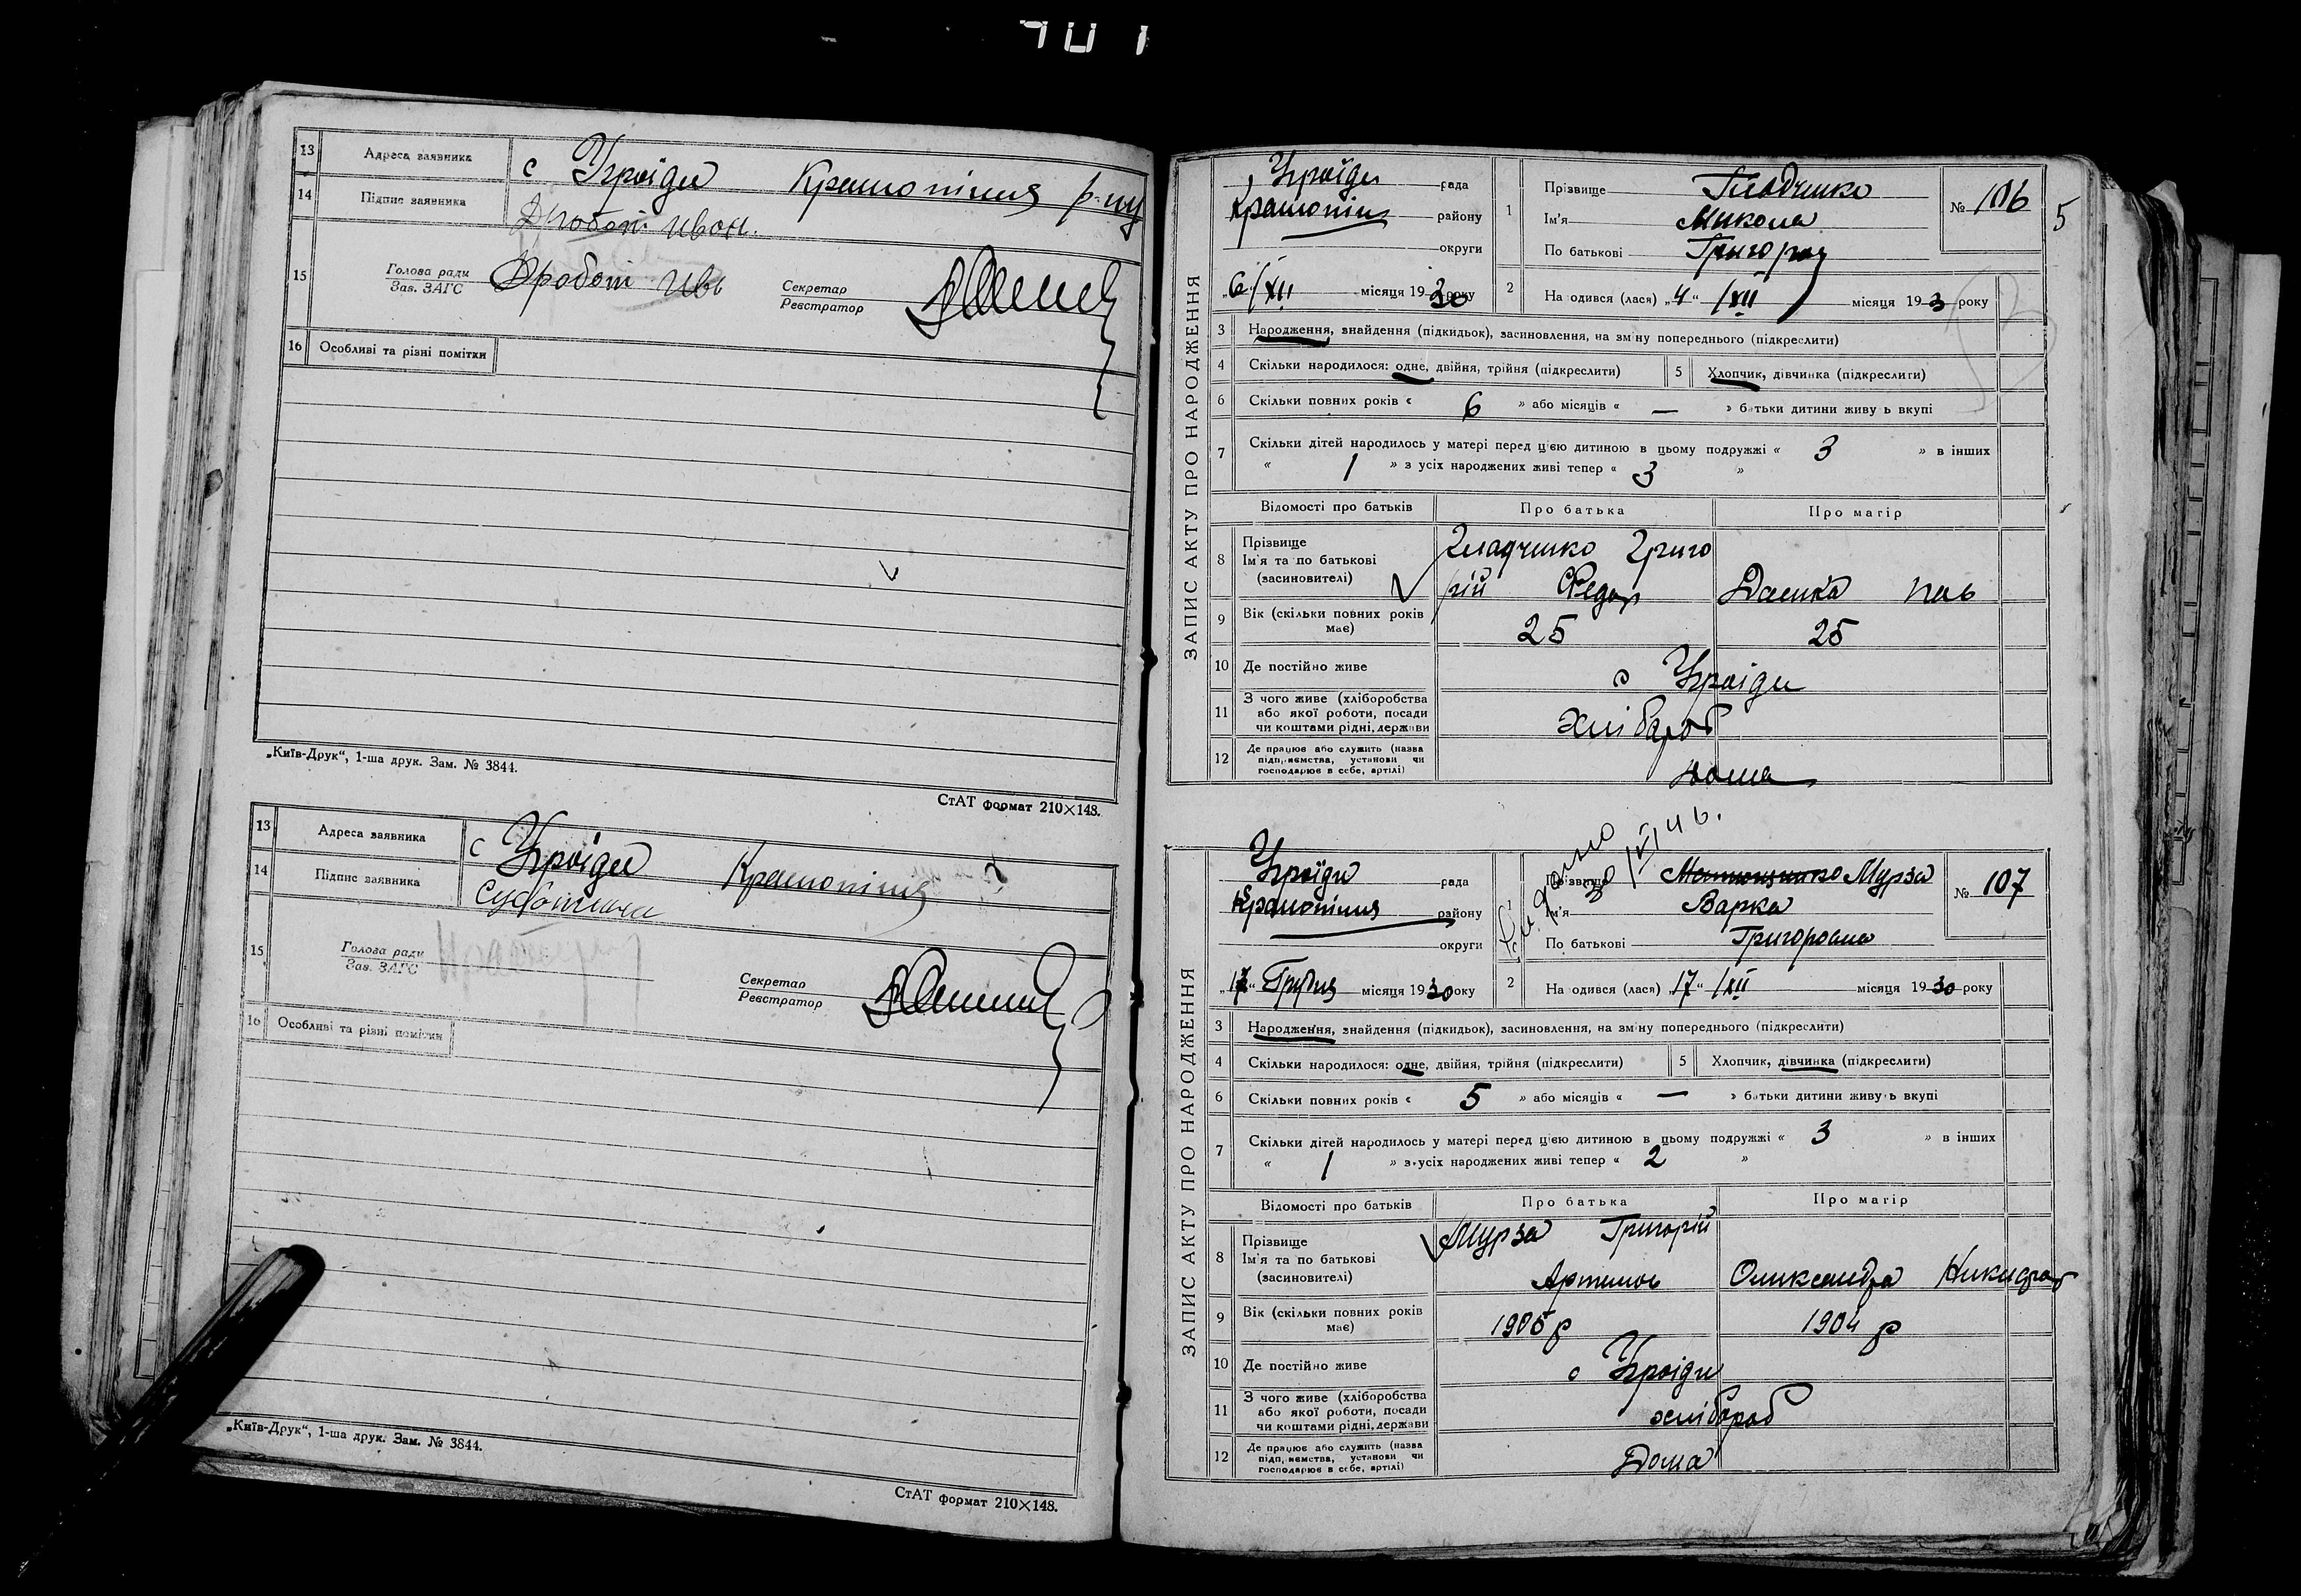 13 Адреса заявника с Угроїди Краснопілля р-ну
14 Підпис заявника Дробот Иван.
15 Голова ради Дробот Ив Секретар
Зав. ЗАГС Реєстратор
16 Особливі та різні помітки
„Київ-Друк“, 1-ша друк. Зам. № 3844.
СтАТ формат 210×148.
13 Адреса заявника с Угроїди Краснопілля
14 Підпис заявника
15 Голова ради Секретар
Зав. ЗАГС Реєстратор
16 Особливі та різні помітки
„Київ-Друк“, 1-ша друк. Зам. № 3844.
СтАТ формат 210×148.
ЗАПИС АКТУ ПРО НАРОДЖЕННЯ
Угроїди рада
Краснопіл району
округи
„6“ /XII місяця 1930 року
1 Прізвище
Ім'я Микола
По батькові Григоров
№ 106
5
2 На одився (лася) „4“ /XII місяця 193 року
3 Народження, знайдення (підкидьок), засиновлення, на зміну попереднього (підкреслити)
4 Скільки народилося: одне, двійня, трійня (підкреслити) 5 Хлопчик, дівчинка (підкреслити)
6 Скільки повних років « 6 » або місяців « — » батьки дитини живуть вкупі
7 Скільки дітей народилось у матері перед цією дитиною в цьому подружжі « 3 » в інших
« 1 » з усіх народжених живі тепер « 3 »
Відомості про батьків Про батька Про матір
8 Прізвище
Ім'я та по батькові
(засиновителі)
Гладченко Григо
рій Федор
9 Вік (скільки повних років має) 25 25
10 Де постійно живе с Угроїди
11 З чого живе (хліборобства або якої роботи, посади чи коштами рідні, держави хлібороб
12 Де працює або служить (назва підприємства, установи чи господарює в себе, артілі) дома
ЗАПИС АКТУ ПРО НАРОДЖЕННЯ
Угроїди рада
Краснопілля району
округи
„17“ Грудня місяця 1930 року
30/VI 46.
1 Прізвище Мурза
Ім'я Варка
По батькові Григоровна
№ 107
2 На одився (лася) „17“ /XII місяця 1930 року
3 Народження, знайдення (підкидьок), засиновлення, на зміну попереднього (підкреслити)
4 Скільки народилося: одне, двійня, трійня (підкреслити) 5 Хлопчик, дівчинка (підкреслити)
6 Скільки повних років « 5 » або місяців « — » батьки дитини живуть вкупі
7 Скільки дітей народилось у матері перед цією дитиною в цьому подружжі « 3 » в інших
« 1 » з усіх народжених живі тепер « 2 »
Відомості про батьків Про батька Про матір
8 Прізвище
Ім'я та по батькові
(засиновителі)
Мурза Григорій
Артимов Олександра Никифор
9 Вік (скільки повних років має) 1905 р 1904 р
10 Де постійно живе с Угроїди
11 З чого живе (хліборобства або якої роботи, посади чи коштами рідні, держави хлібороб
12 Де працює або служить (назва підприємства, установи чи господарює в себе, артілі) Дома